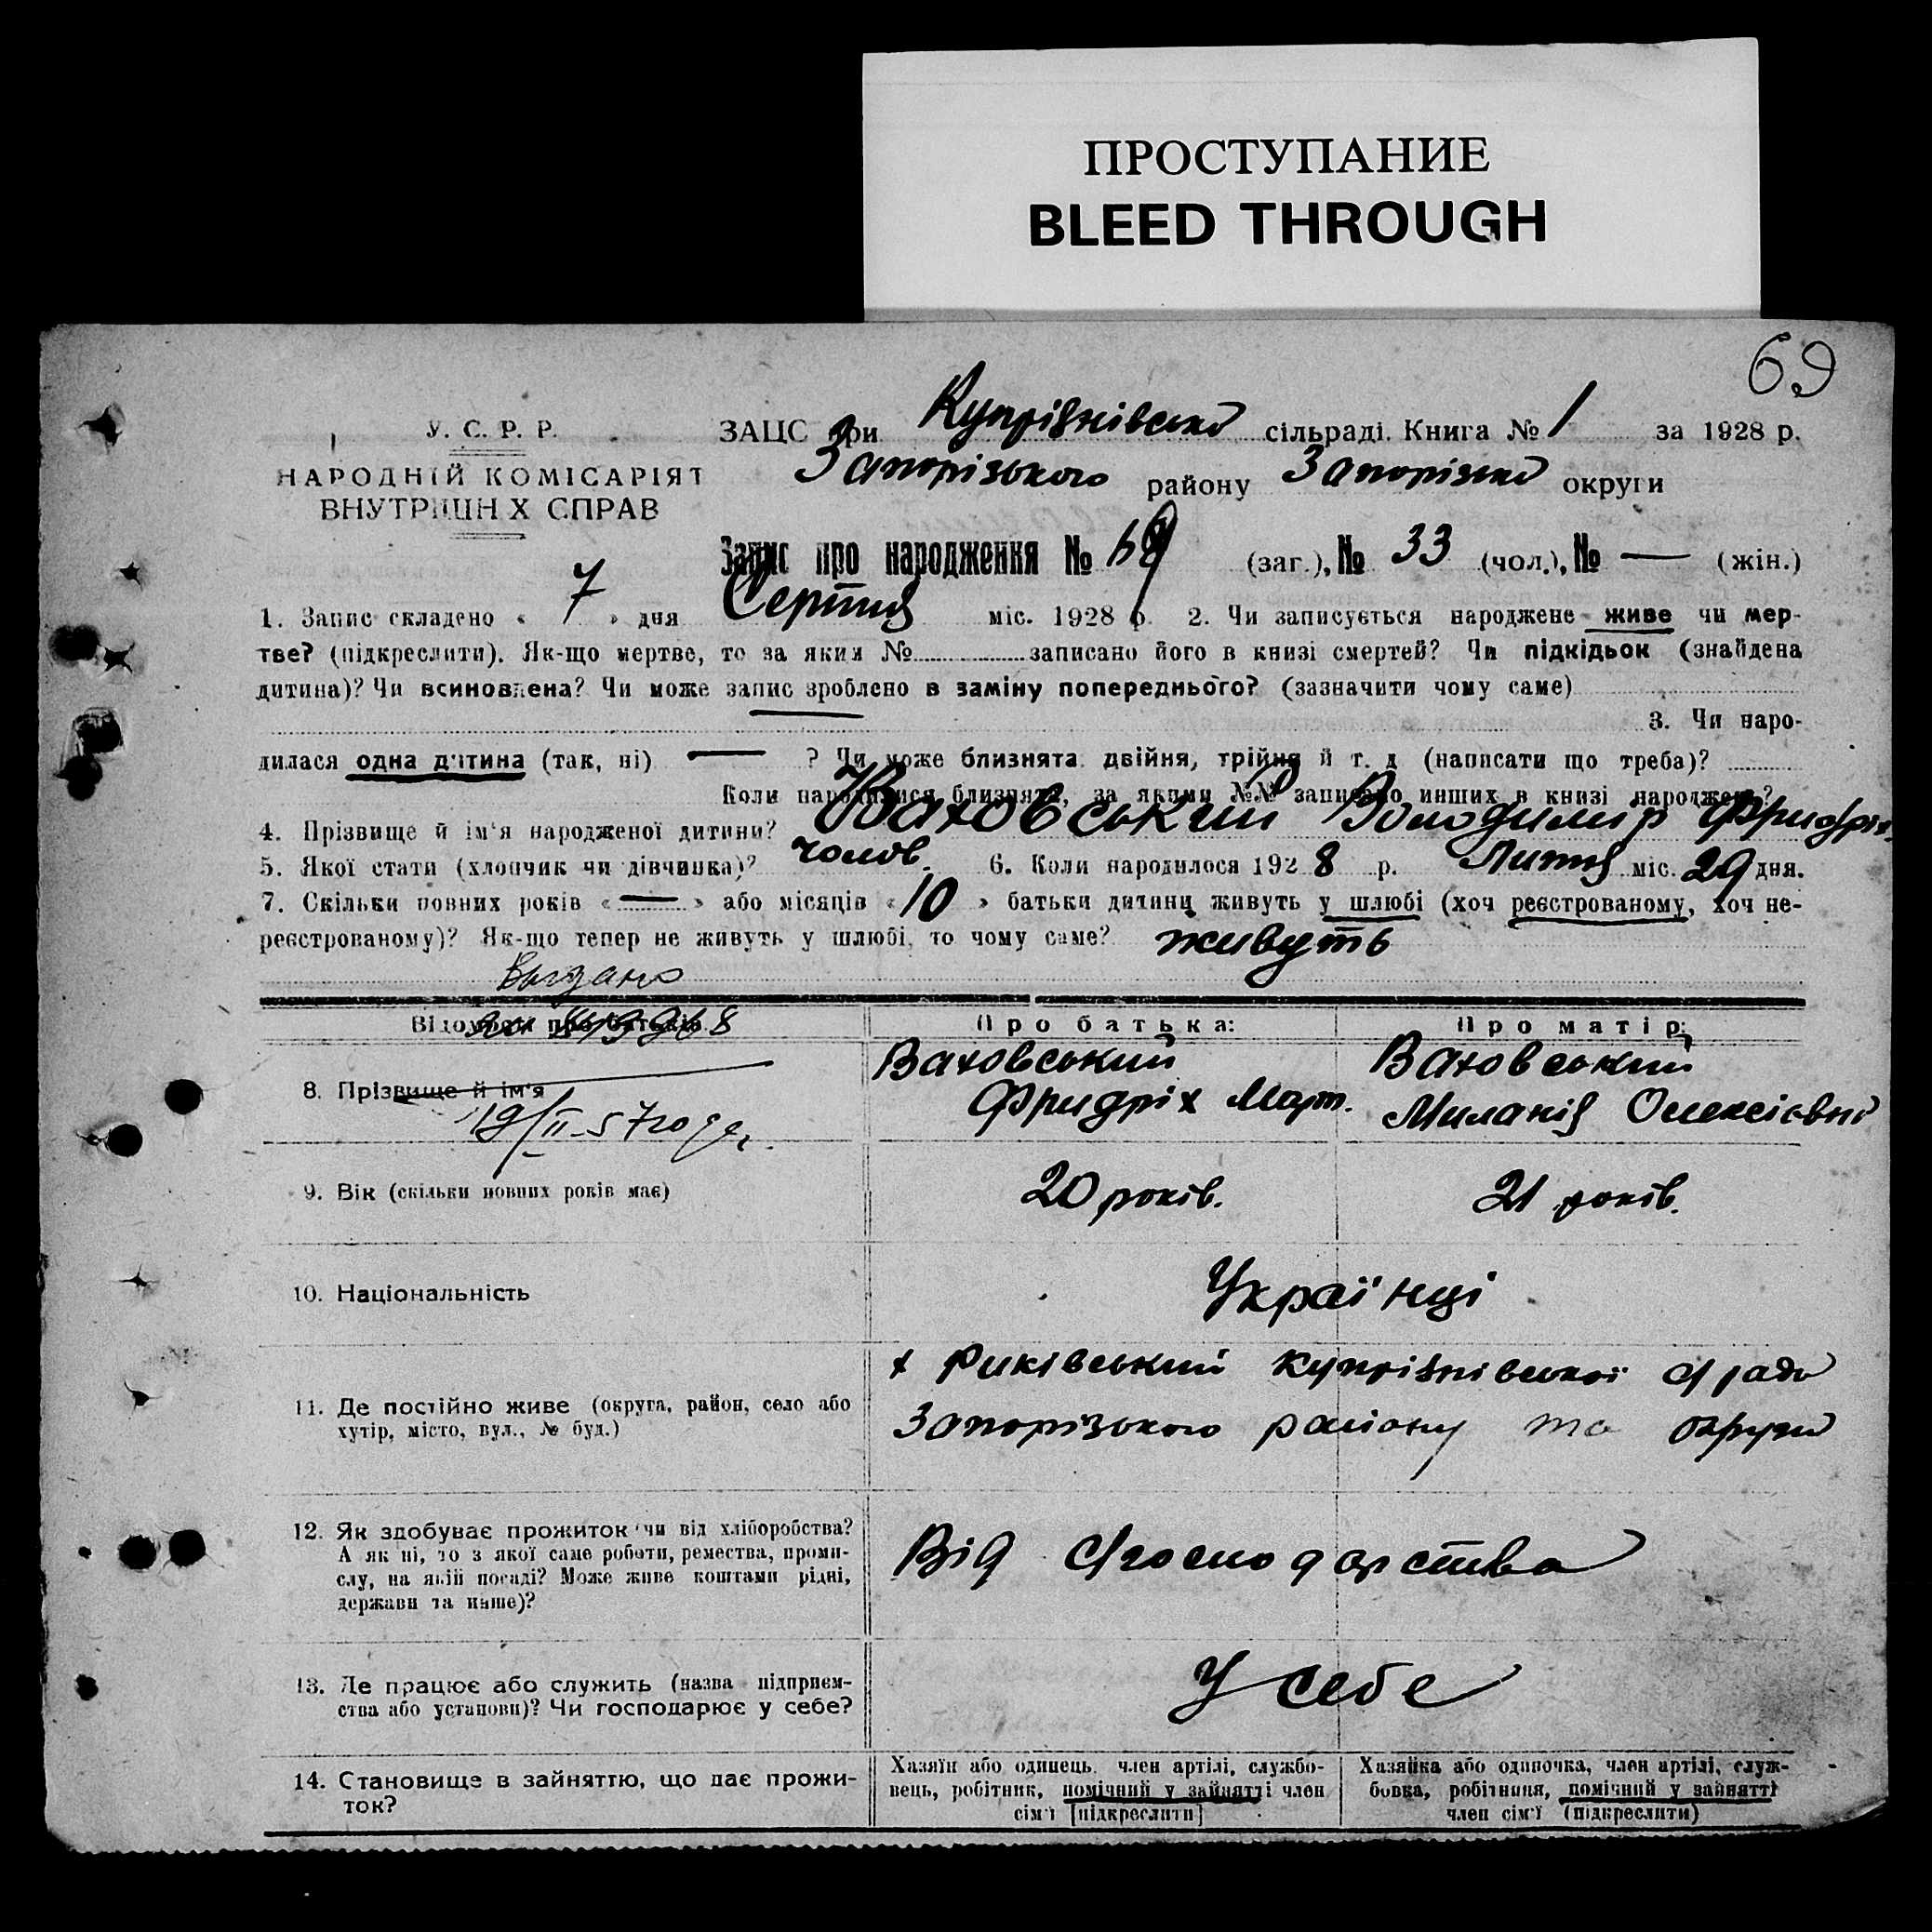 ПРОСТУПАНИЕ
BLEED THROUGH
69
У. С. Р. Р.
НАРОДНІЙ КОМІСАРІЯТ
ВНУТРІШНІХ СПРАВ
ЗАЦС при Купріянівській сільраді. Книга № 1 за 1928 р.
Запорізького району Запорізької округи
Запис про народження № 69 (заг.), № 33 (чол.), № — (жін.)
1. Запис складено « 7 » дня Серпня міс. 1928 р. 2. Чи записується народжене живе чи мер-
тве? (підкреслити). Як-що мертве, то за яким № записано його в книзі смертей? Чи підкідьок (знайдена
дитина)? Чи всиновлена? Чи може запис зроблено в заміну попереднього? (зазначити чому саме)
3. Чи наро-
дилася одна дитина (так, ні) — ? Чи може близнята двійня, трійня й т. д (написати що треба)?
Коли народилися близнята, за якими №№ записано инших в книзі народжень?
4. Прізвище й ім'я народженої дитини? Ваховський Володимир Фридріх.
5. Якої стати (хлопчик чи дівчинка)? чолов. 6. Коли народилося 1928 р. Липня міс. 29 дня.
7. Скільки повних років « — » або місяців « 10 » батьки дитини живуть у шлюбі (хоч реєстрованому, хоч не-
реєстрованому)? Як-що тепер не живуть у шлюбі, то чому саме? живуть
Выдано
Відомости про батьків
Про батька:
Про матір:
8. Прізвище й ім'я
19/II-57 года
Ваховський
Фридріх Март.
Ваховський
Миланія Олексіівні
9. Вік (скільки повних років має)
20 років.
21 років.
10. Національність
Українці
11. Де постійно живе (округа, район, село або
хутір, місто, вул., № буд.)
х Риківський Купріянівської с/ради
Запорізького району та округи
12. Як здобуває прожиток чи від хліборобства?
А як ні, то з якої саме роботи, ремества, проми-
слу, на якій посаді? Може живе коштами рідні,
держави та инше)?
Від с/господарства
13. Де працює або служить (назва підприєм-
ства або установи)? Чи господарює у себе?
У себе
14. Становище в зайняттю, що дає прожи-
ток?
Хазяїн або одинець, член артілі, службо-
вець, робітник, помічний у зайнятті член
сім'ї [підкреслити]
Хазяйка або одиночка, член артілі, служ-
бовка, робітниця, помічний у зайнятті
член сім'ї (підкреслити)